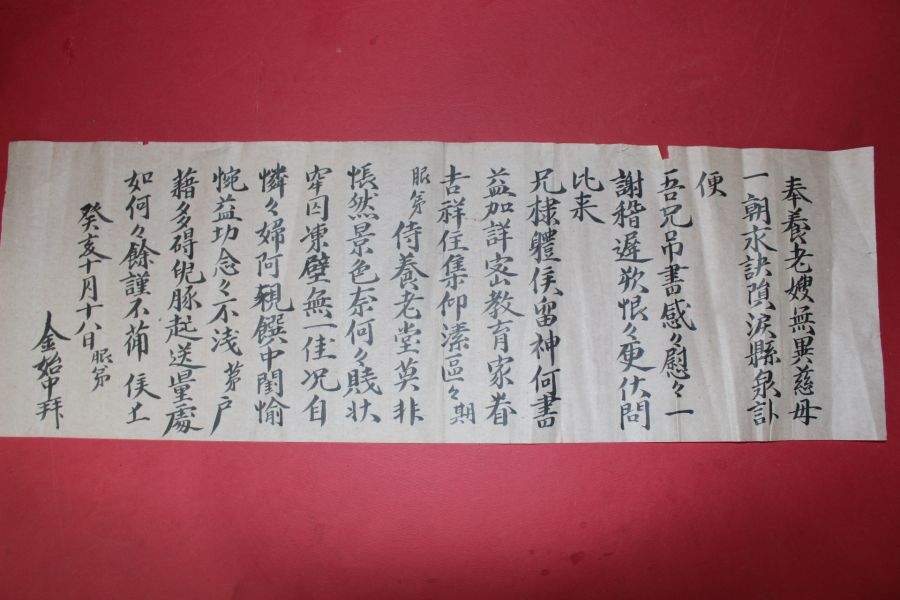 奉養老嫂無異慈母
一朝永訣隕淚縣泉訃
便
吾兄吊書感々慰々一
謝稽遲歎恨々更伏問
比来
兄棣體侯留神何書
益加詳密教育家眷
吉祥住集仰溸區々期
服弟侍養老堂莫非
悵然景色奈何々賤状
窂囚凍壁無一佳况自
憐々婦阿親饌中閨愉
惋益切念々不淺茅戶
藉多碍兒豚起送量處
如何々餘謹不備侯土
癸亥十月十八日服弟
金始中拜